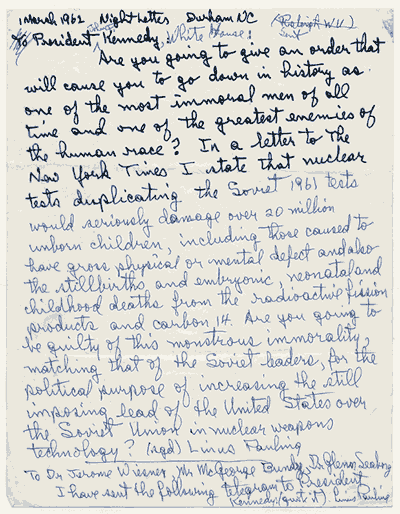 1 March 1962 Night Letter Durham NC (Raleigh W U)
Sent
To President John Kennedy, White House:
Are you going to give an order that
will cause you to go down in history as
one of the most immoral men of all
time and one of the greatest enemies of
the human race? In a letter to The
New York Times I state that nuclear
tests duplicating the Soviet 1961 tests
would seriously damage over 20 million
unborn children, including those caused to
have gross physical or mental defect and also
the stillbirths and embryonic, neonatal and
childhood deaths from the radioactive fission
products and carbon 14. Are you going to
be guilty of this monstrous immorality,
matching that of the Soviet leaders, for the
political purpose of increasing the still
imposing lead of the United States over
the Soviet Union in nuclear weapons
technology? (sgd) Linus Pauling
To Dr Jerome Wiesner, Mr McGeorge Bundy, Dr Glenn Seaborg
I have sent the following telegram to President
Kennedy: (quote it). Linus Pauling